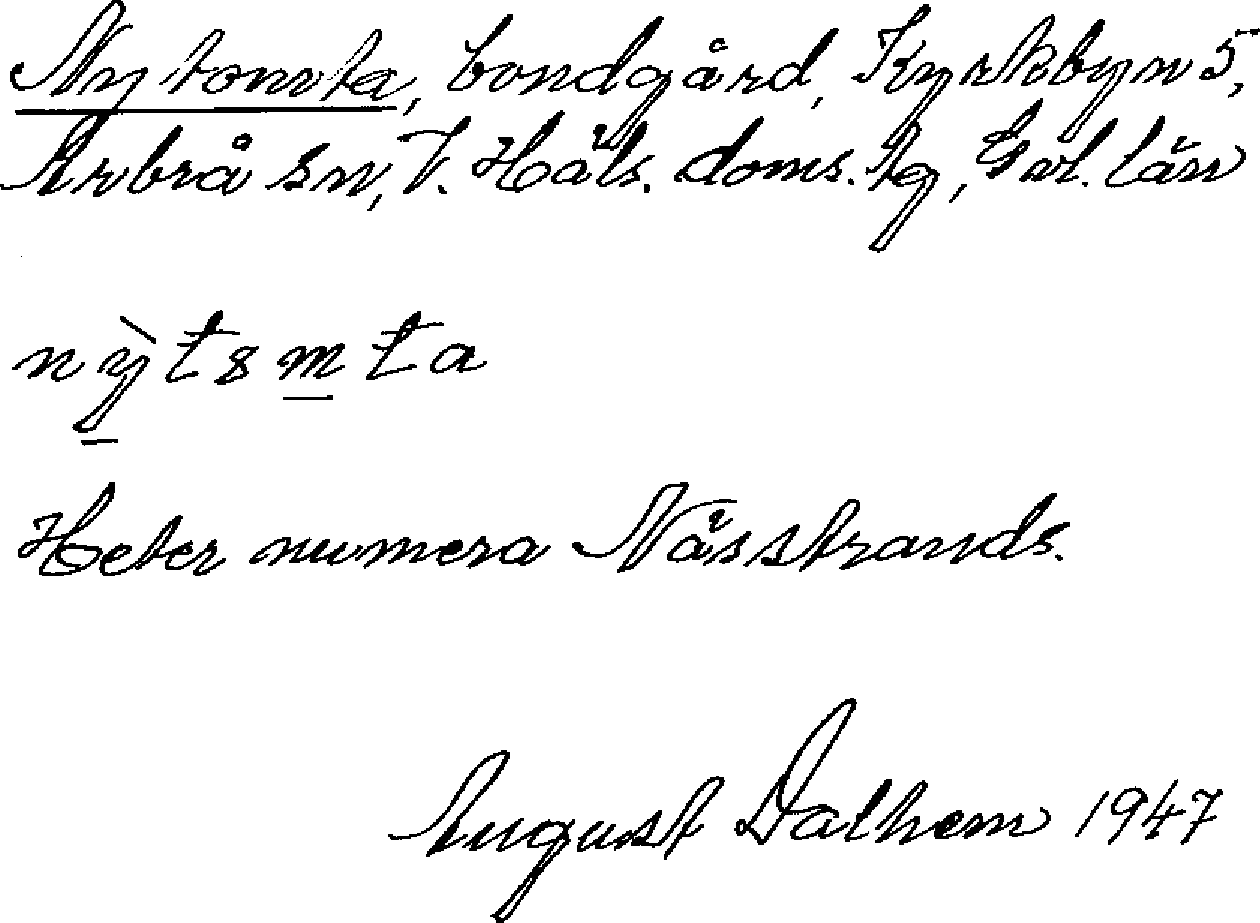 Nytomta, bondgård, Kyrkbyn 5,
Arbrå sn, V. Häls. doms. lg, Gvl. län
nỳtsmta
Heter numera Nässtrands.
August Dalhem 1947